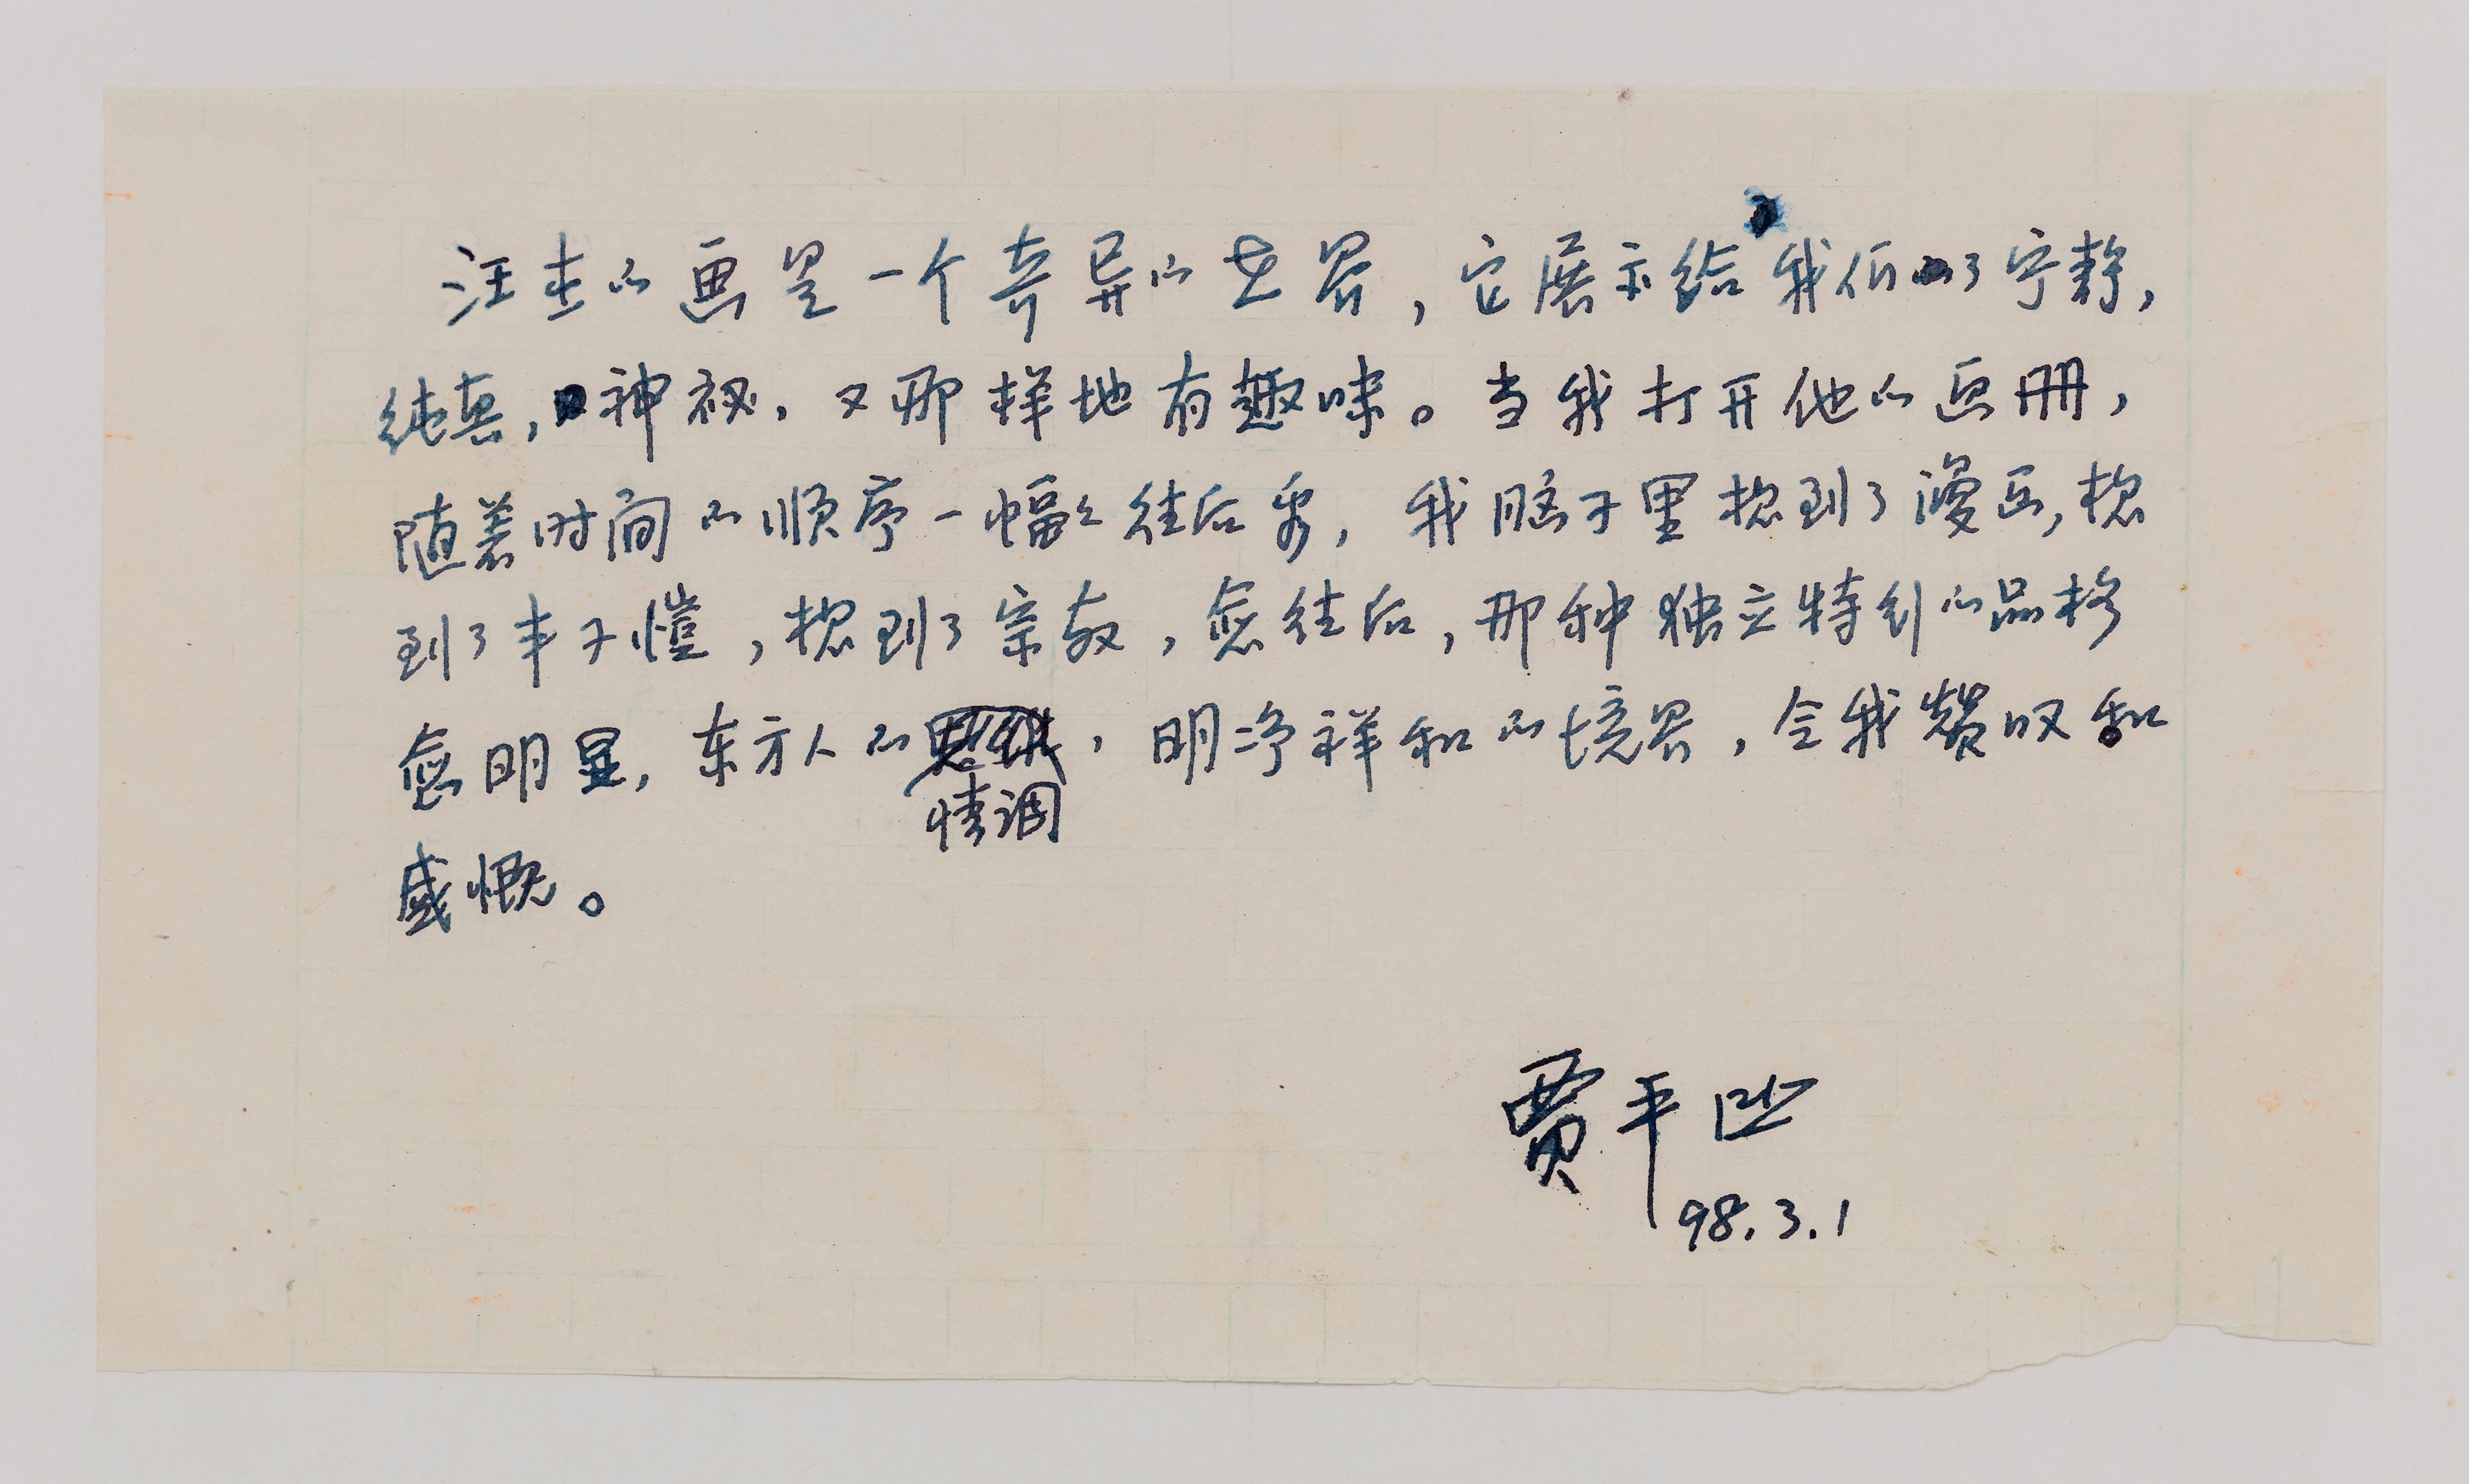 汪圭的画是一个奇异的世界，它展示给我们了宁静，
纯真，神秘，又那样地有趣味。当我打开他的画册，
随着时间的顺序一幅幅往后看，我脑子里想到了漫画，想
到了丰子恺，想到了宗教，愈往后，那种独立特别的品格
愈明显，东方人的，明净祥和的境界，令我赞叹和
情调
感慨。
贾平凹
98.3.1